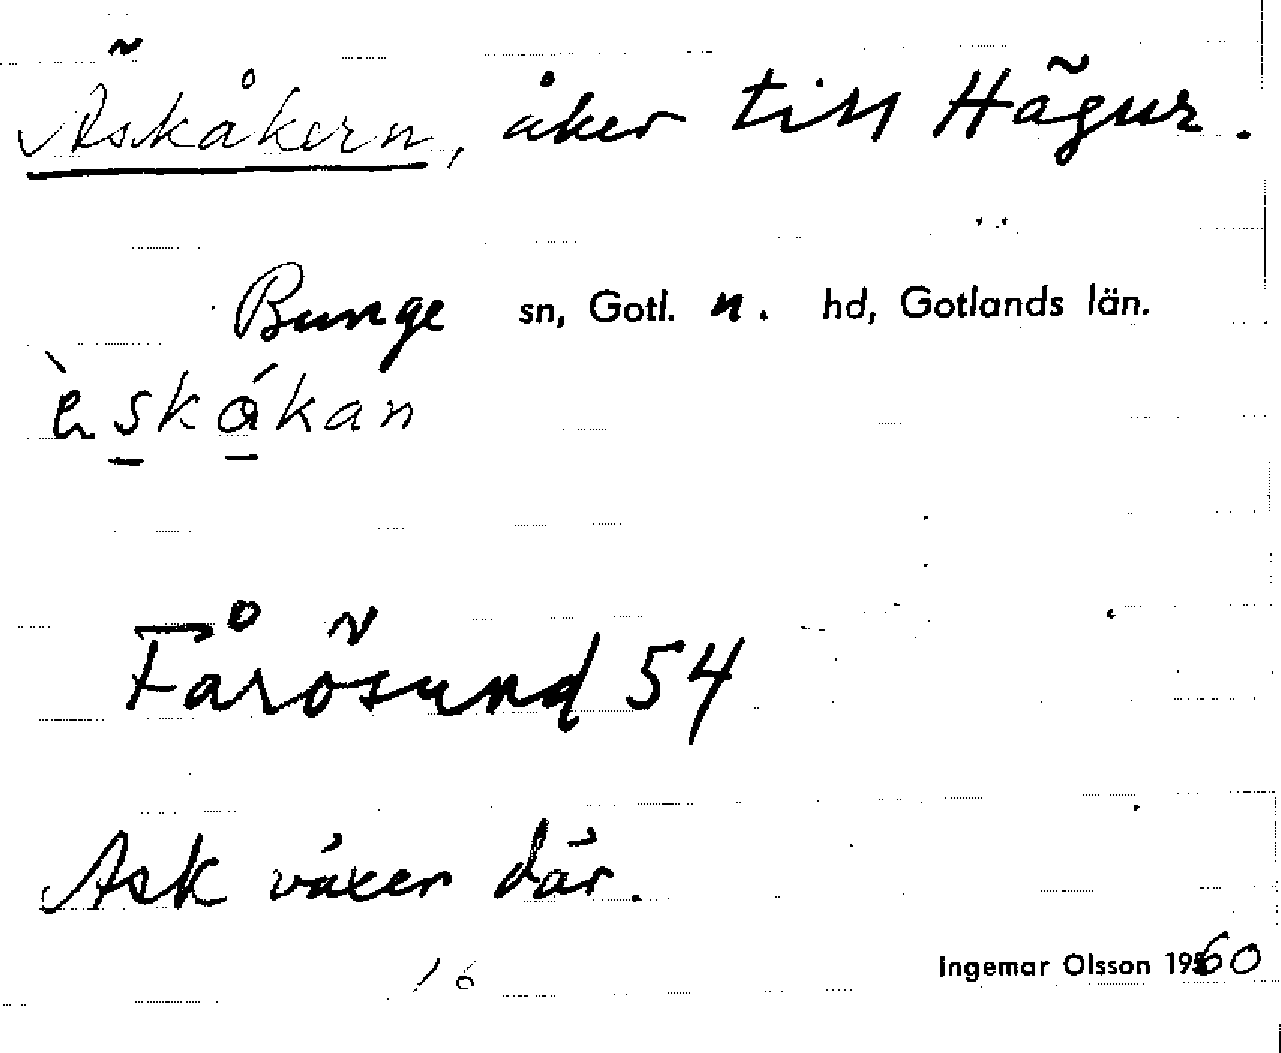 Äskåkern, åker till Hägur.
Bunge sn, Gotl. n. hd, Gotlands län.
èskákan
Fårösund 54
Ask växer där.
16
Ingemar Olsson 1960